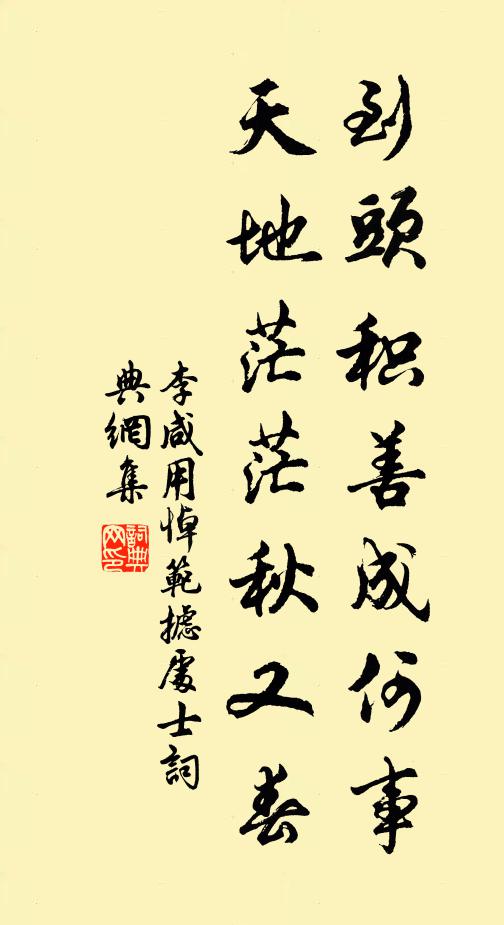 到頭积善成何事
天地茫茫秋又春
李咸用悼範攄處士詞
典網集
詞典
网印